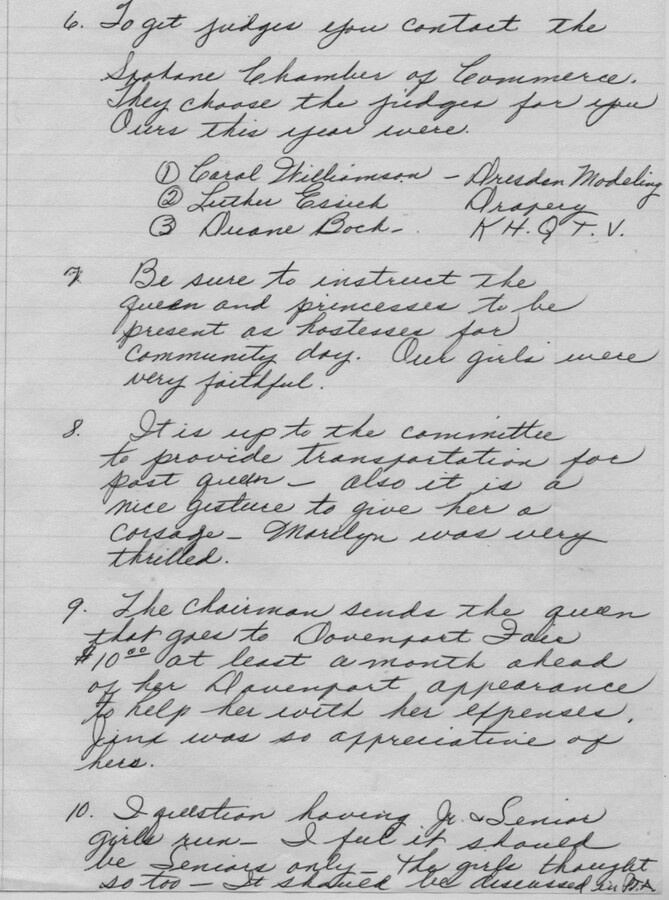 6. To get judges you contact the
Spokane Chamber of Commerce.
They choose the judges for you
Ours this year were.
① Carol Williamson - Dresden Modeling
② Luther Essich Drapery
③ Duane Bock - K.H.Q T.V.
7 Be sure to instruct the
queen and princesses to be
present as hostesses for
community day. Our girls were
very faithful.
8. It is up to the committee
to provide transportation for
past queen - also it is a
nice gesture to give her a
corsage - Marilyn was very
thrilled.
9. The chairman sends the queen
that goes to Davenport Fair
$10.00 at least a month ahead
of her Davenport appearance
to help her with her expenses.
was so appreciative of
hers.
10. I question having Jr. & Senior
girls run - I feel it should
be Seniors only - The girls thought
so too - It should be discussed in